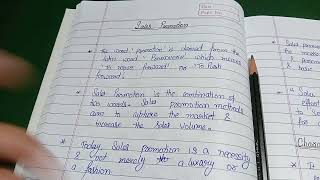 Sales Promotion
* The word "promotion" is derived from the
latin word "Promovere" which means
"to move forward" or "to push
forward".
* Sales Promotion is the combination of
two words. Sales promotion methods
aim to capture the market &
increase the sales volume.
* Today, Sales promotion is a necessity
& not merely a luxury or
a fashion.
Sales
for
&
"A
Sales
of
It